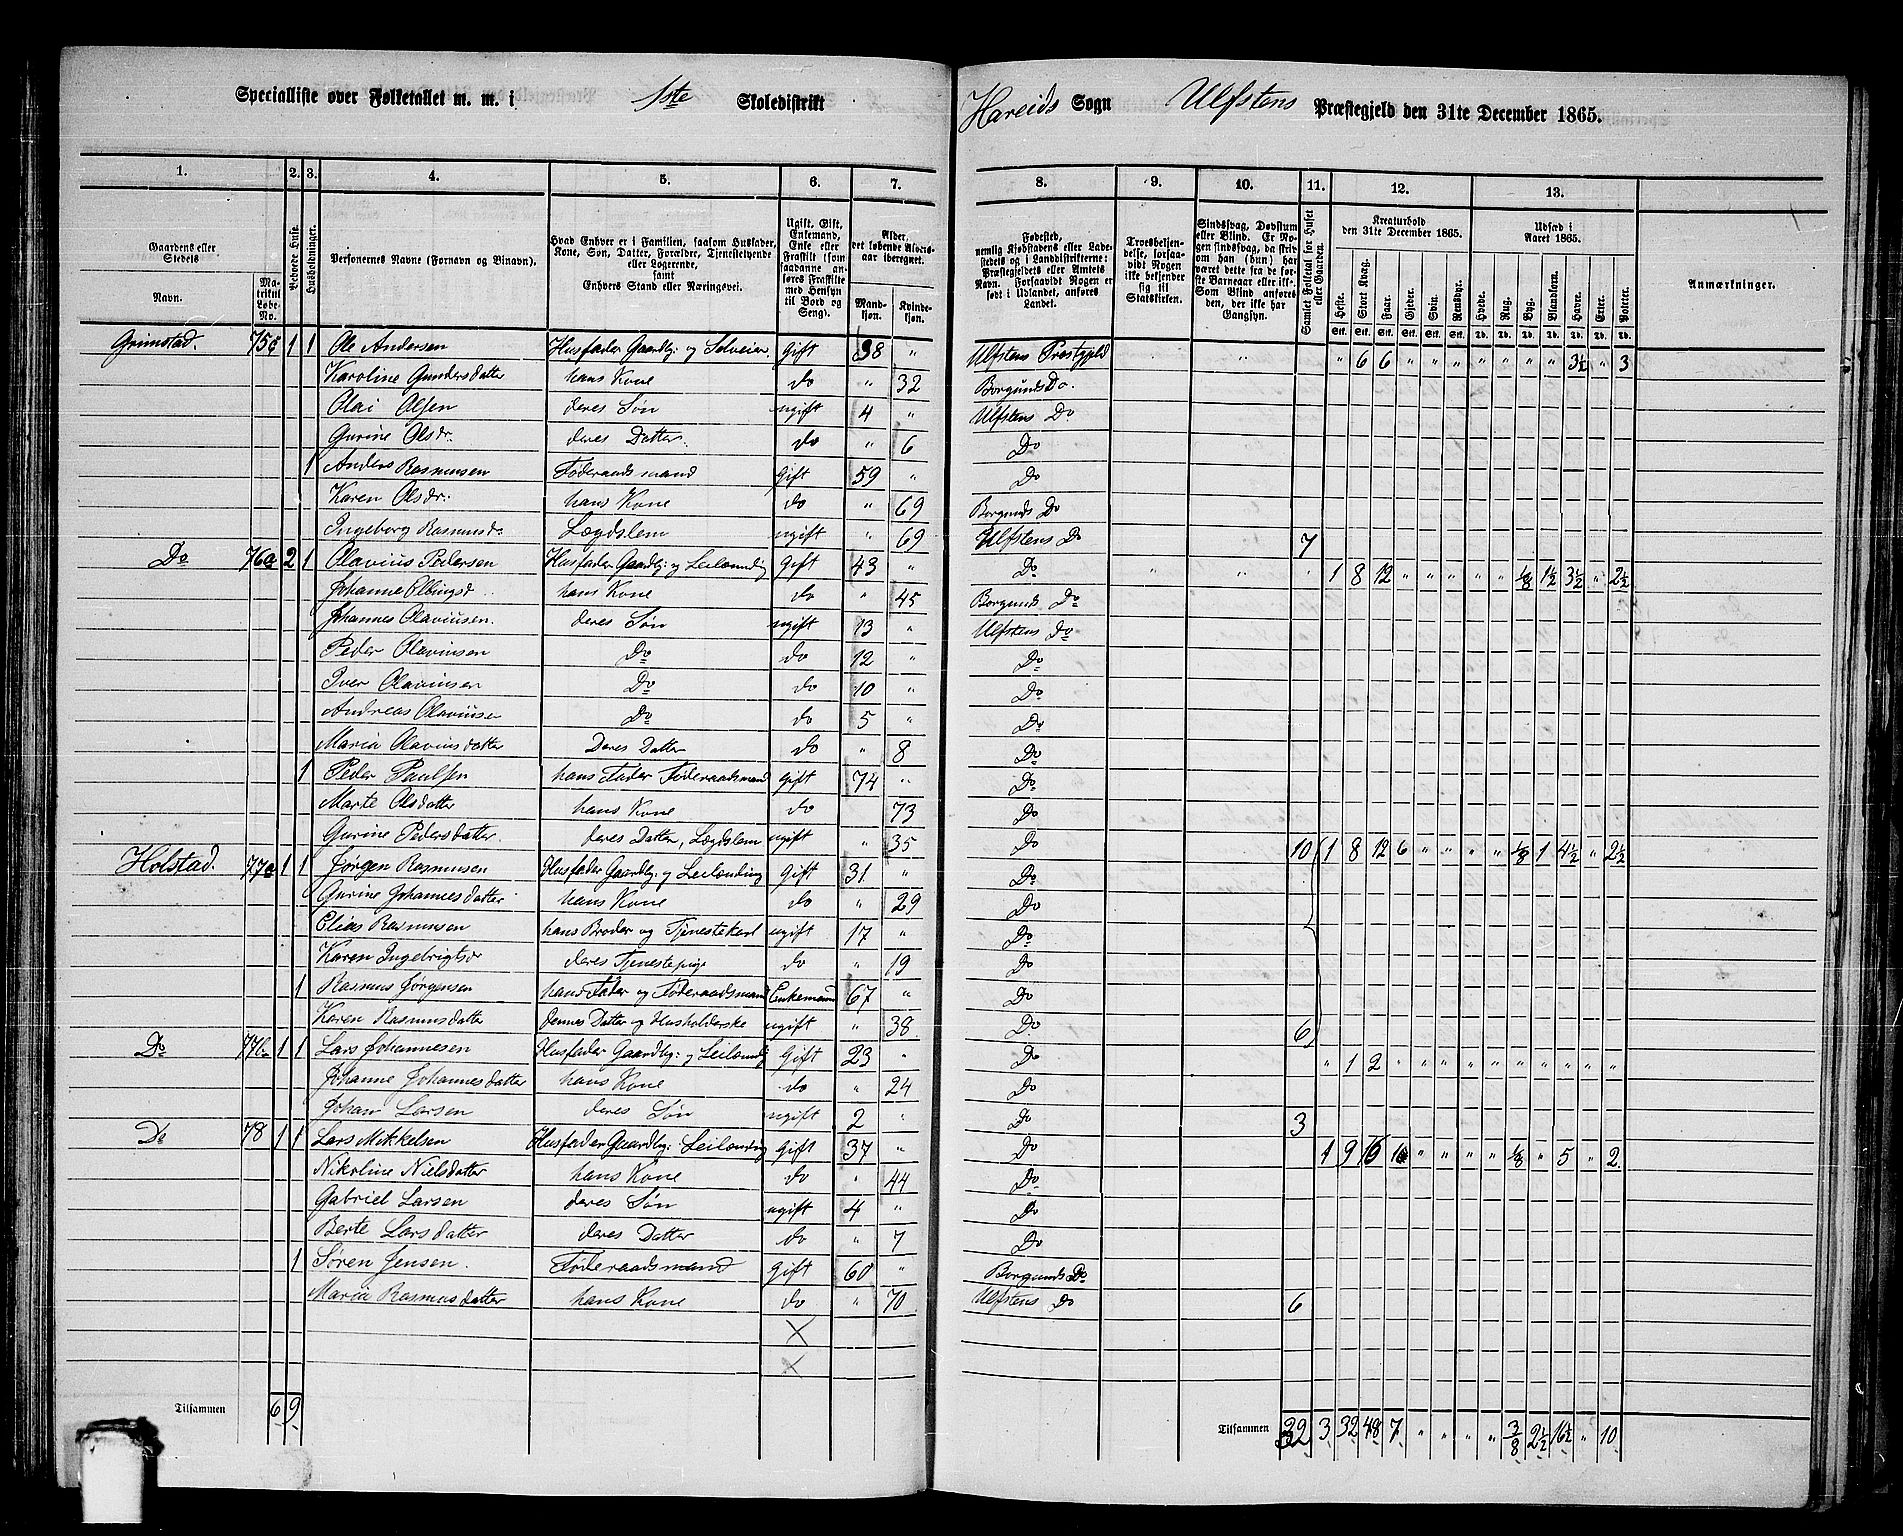 Specialliste over Folketallet m. m. i 1ste Skoledistrikt Hareids Sogn Ulfstens Præstegjeld den 31te December 1865.
1. 2. 3. 4. 5. 6. 7. 8. 9. 10. 11. 12. 13.
Gaardens eller Stedets
Navn.
Matrikul Løbe-No.
Beboede Huse.
Husholdninger.
Personernes Navne (Fornavn og Binavn).
Hvad Enhver er i Familien, saasom Husfader, Kone, Søn, Datter, Forældre, Tjenestetyende eller Logerende, samt Enhvers Stand eller Næringsvei.
Ugift, Gift, Enkemand, Enke eller Fraskilt (som saadanne anføres Fraskilte med Hensyn til Bord og Seng).
Alder, det løbende Alders-aar iberegnet.
Mand-kjøn. Kvinde-kjøn.
Fødested, nemlig Kjøbstadens eller Ladestedets og i Landdistrikterne: Præstegjeldets eller Amtets Navn. Forsaavidt Nogen er født i Udlandet, anføres Landet.
Troesbekjendelse, forsaavidt Nogen ikke bekjender sig til Statskirken.
Sindssvag, Døvstum eller Blind. Er Nogen sindssvag, da skrives om han (hun) har været dette fra de første Barneaar eller ikke. Som Blind anføres den, der ikke har Gangsyn.
Samlet Folketal for Huset eller Gaarden.
Kreaturhold den 31te December 1865.
Heste. Stort Kvæg. Faar. Gjeder. Svin. Rensdyr.
Udsæd i Aaret 1865.
Hvede. Rug. Byg. Blandkorn. Havre. Erter. Poteter.
Anmærkninger.
Grimstad. 75c 1 1 Ole Andersen Husfader Gaardbr: og Selveier Gift 38 " Ulfstens Prestgjeld " " " 6 6 " " " " " " " 3½ " 3
Karoline Gundersdatter hans Kone do " 32 Borgunds Do.
Olai Olsen deres Søn ugift 4 " Ulfstens Do
Gurine Olsdr. deres Datter. do " 6 Do
1 Anders Rasmusen Føderaadsmand gift 59 " Do
Karen Olsdr: hans Kone do " 69 Borgunds Do
Ingeborg Rasmusdr Lægdslem ugift " 69 Ulfstens Do 7
Do 76a 2 1 Olavius Pedersen Husfader Gaardbr: og Leilænding Gift 43 " Do " " " 1 8 12 " " " " " ⅛ 1½ 3½ " 2½
Johanne Elbingsd hans Kone do " 45 Borgunds Do
Johannes Olaviusen. deres Søn ugift 13 " Ulfstens Do
Peder Olaviusen Do do 12 " Do
Iver Olaviusen Do do 10 " Do
Andreas Olaviuse Do do 5 " Do
Maria Olaviusdatter Deres Datter do " 8 Do
1 Peder Paulsen hans Fader Føderaadsmand gift 74 " Do
Marte Olsdatter hans Kone do " 73 Do
Gurine Pedersdatter. deres Datter, Lægdslem ugift " 35 Do 10 1 8 12 6 " " " " ⅛ 1 4½ " 2½
Holstad. 77a 1 1 Jørgen Rasmusen Husfader Gaardbr: og Leilænding Gift 31 " Do
Gurine Johannesdatter hans Kone do " 29 Do
Elias Rasmusen hans Broder og Tjenestekarl ugift 17 " Do
Karen Ingebrigtsdr deres Tjenestepige do " 19 Do
1 Rasmus Jørgensen hans Fader og Føderaadsmand Enkemand 67 " Do
Karen Rasmusdatter dennes Datter og Husholderske ugift " 38 Do 6
Do 77b 1 1 Lars Johannesen Husfader Gaardbr: og Leilændig Gift 23 " Do " 1 2 " " " " " " " " " "
Johanne Johannesdatter hans Kone do " 24 Do
Johan Larsen deres Søn ugift 2 " Do 3
Do 78 1 1 Lars Mikkelsen Husfader Gaardbr: Leilænding Gift 37 " Do 1 9 16 1 " " " " ⅛ " 5 " 2
Nikoline Nielsdatter hans Kone do " 44 Do
Gabriel Larsen deres Søn ugift 4 " Do
Berte Larsdatter deres Datter do " 7 Do
1 Søren Jensen. Føderaadsmand Gift 60 " Borgunds Do
Maria Rasmusdatter hans Kone do " 70 Ulfstens Do 6
Tilsammen 6 9 Tilsammen 32 3 32 48 7 " " " " 3/8 2½ 16½ " 10